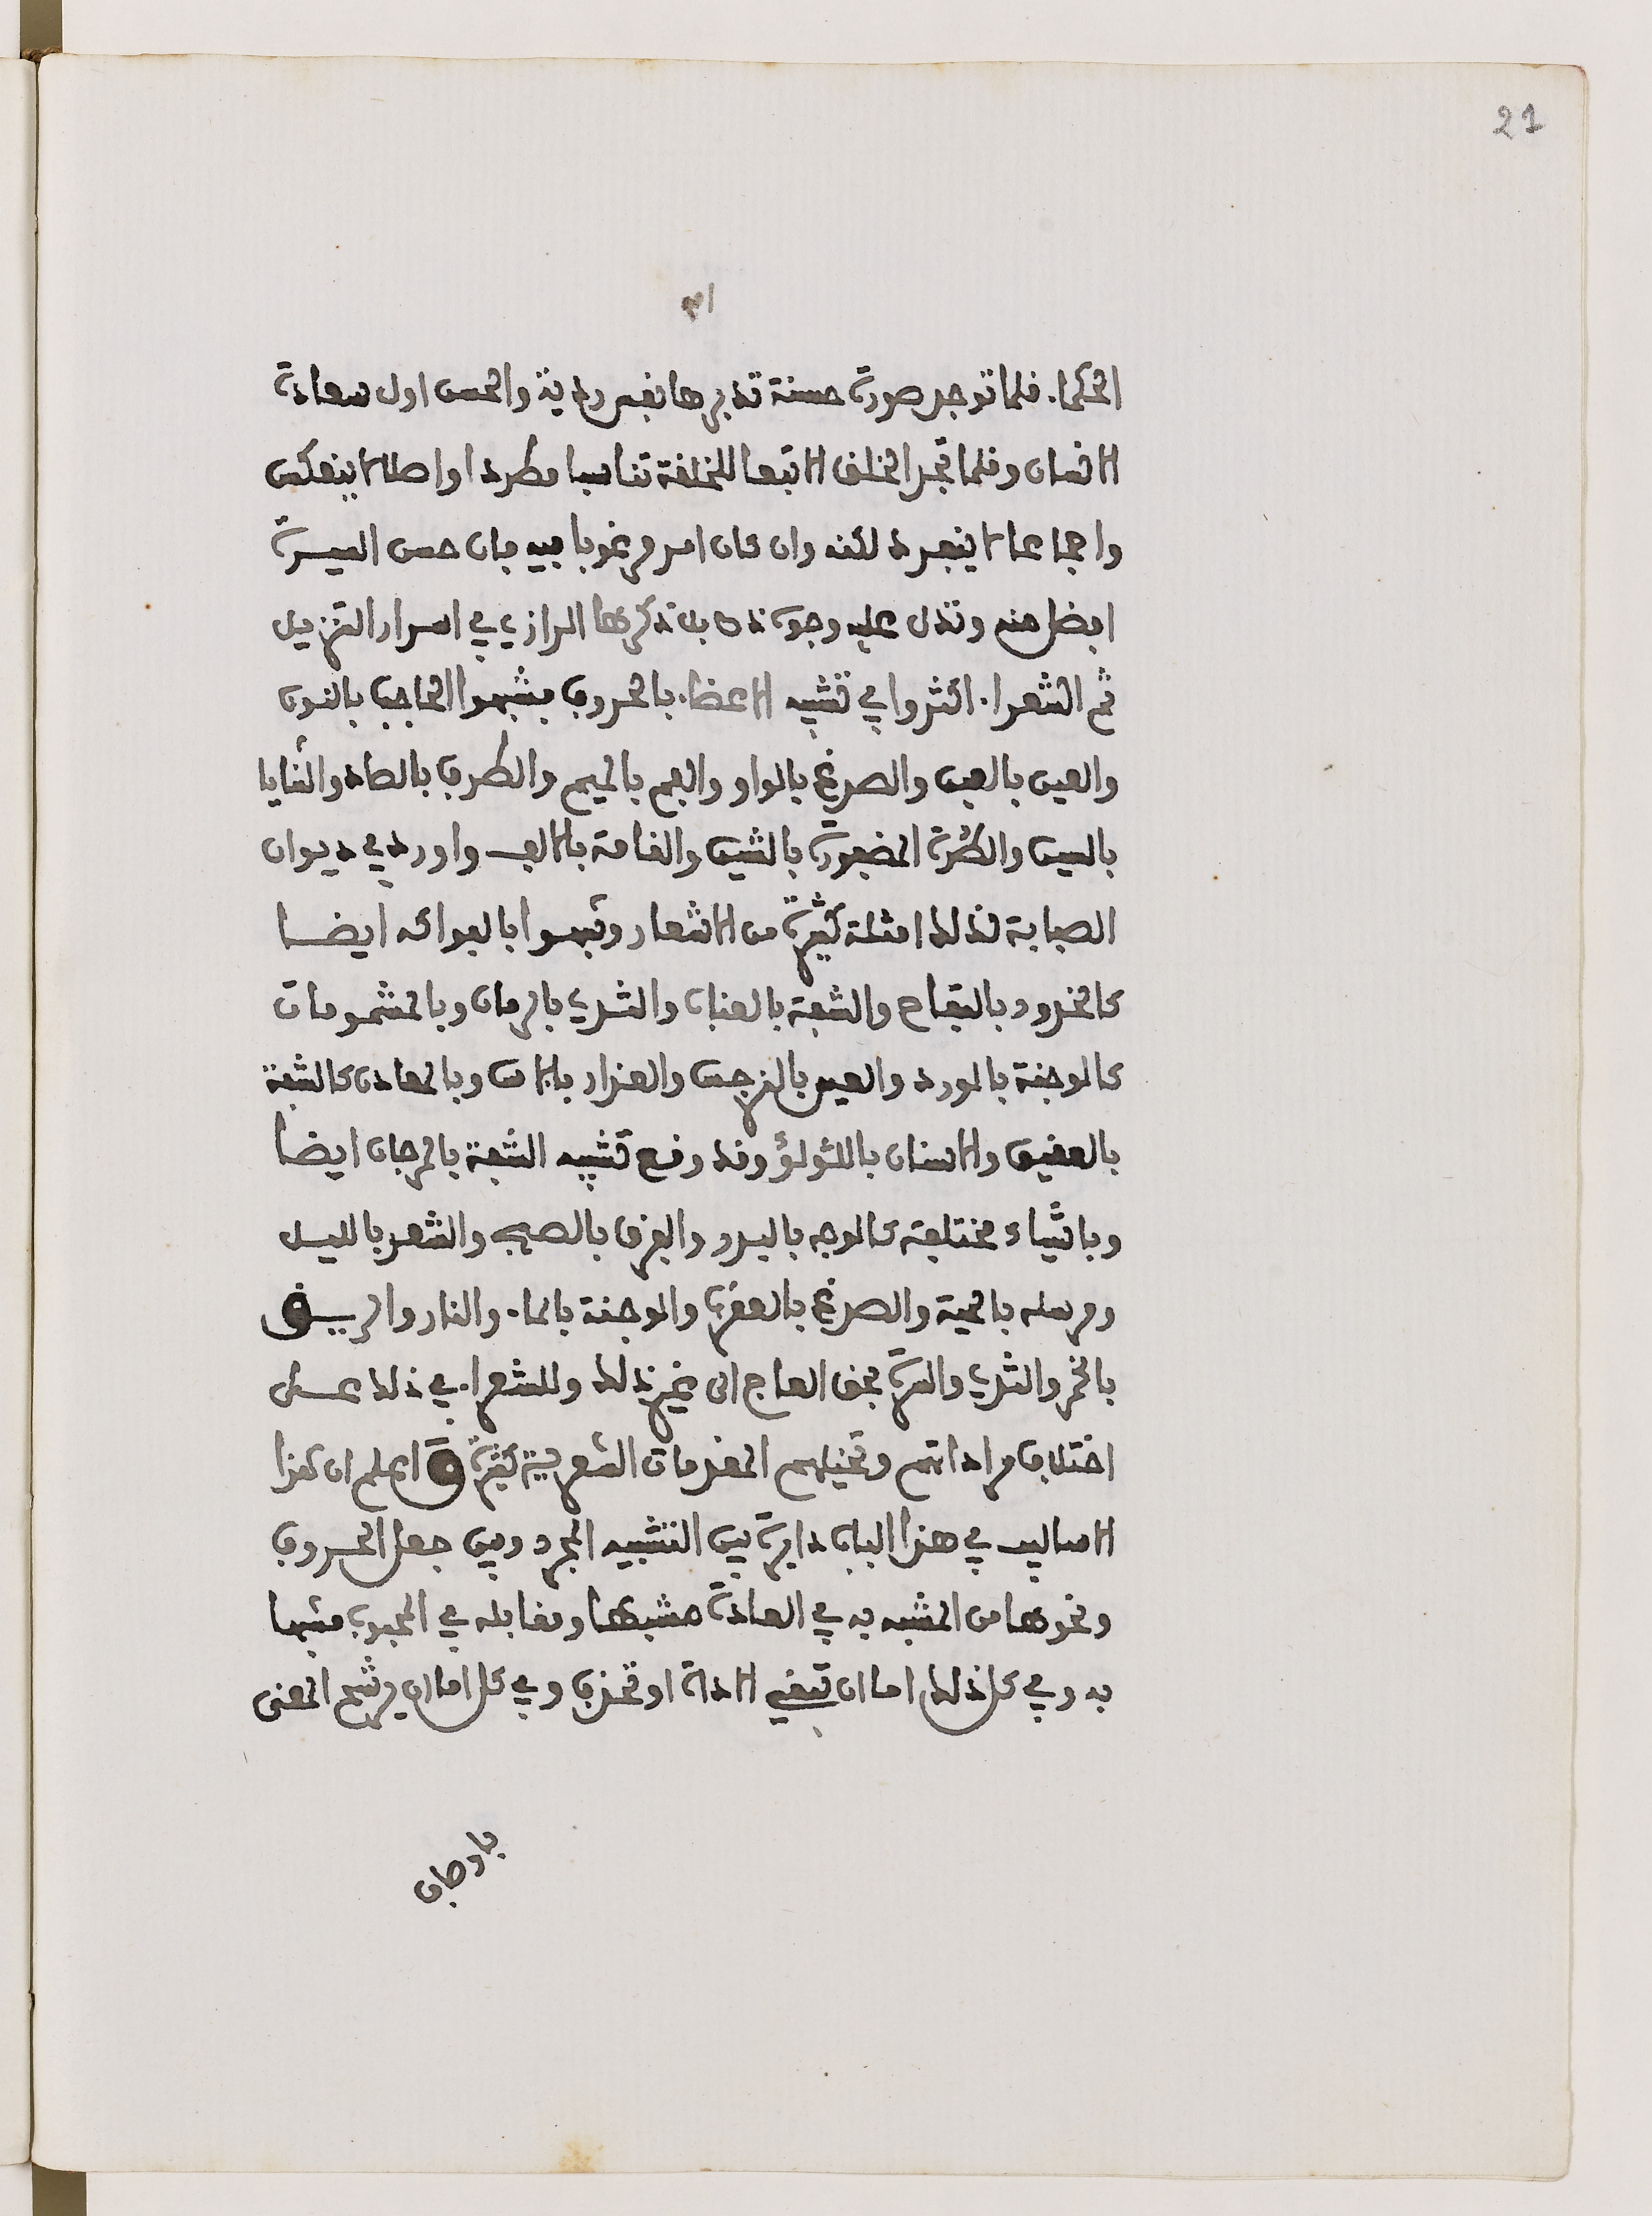 21
الحكما. فلما توجد صورة حسنة تدبرها نفس ردية والحسن اول سعادة
الانسان وقلما تجد الخلق الا تبعا للخلقة تناسبا مطردا واصلا لا ينعكس
واجماعا لا ينفرد لكنه وان كان امر مرغوبا فيه فان حسن السيرة
افضل منه وتدل عليه وجوه ذكرها الرازي في اسرار التنزيل
ثم الشعرا. اكثروا في تشبيه الاعضا. بالحروف فشبهوا الحاجب بالنون
والعين بالعين والصدغ بالواو والفم بالميم والطرف بالصاد والثنايا
بالسين والطرة المضفورة بالشين والقامة بالالف واورد في ديوان
الصبابة لذلك امثلة كثيرة من الاشعار وشبهوا بالفواكه ايضا
كالخدود بالتفاح والشفة بالعناب والثدي بالرمان وبالمشمومات
كالوجنة بالورد والعين بالنرجس والعذار بالاس وبالمعادن كالشفة
بالعقيق والاسنان باللؤلؤ وقد وقع تشبيه الشفة بالمرجان ايضا
وباشياء مختلفة كالوجه بالبدر والفرق بالصبح والشعر بالليل
ومرسله بالحية والصدغ بالعقرب والوجنة بالما. والنار والريق
بالخمر والثدي والسرة بحق العاج الى غير ذلك وللشعرا. في ذلك على
اختلاف مراداتهم وتخيلهم المقدمات الشعرية كثرة واعلم ان هذا
الاساليب في هذا الباب دايرة بين التشبيه المجرد وبين جعل الحروف
ونحوها من المشبه به في العادة مشبها ومقابله في المحبوب مشبها
به وفي كل ذلك اما ان تبقى الاداة او تحذف وفي كل اما ان يرشح المعنى
باوصاف